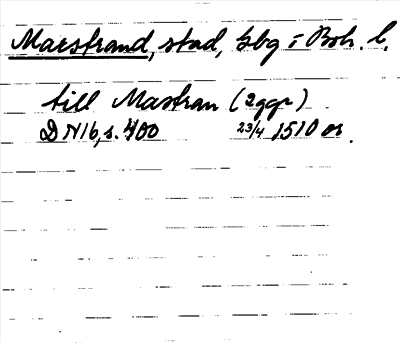 Marstrand, stad, Gbg o Boh. l.
till Mastran (2 ggr)
DN 16, s. 400 23/4 1510 or.